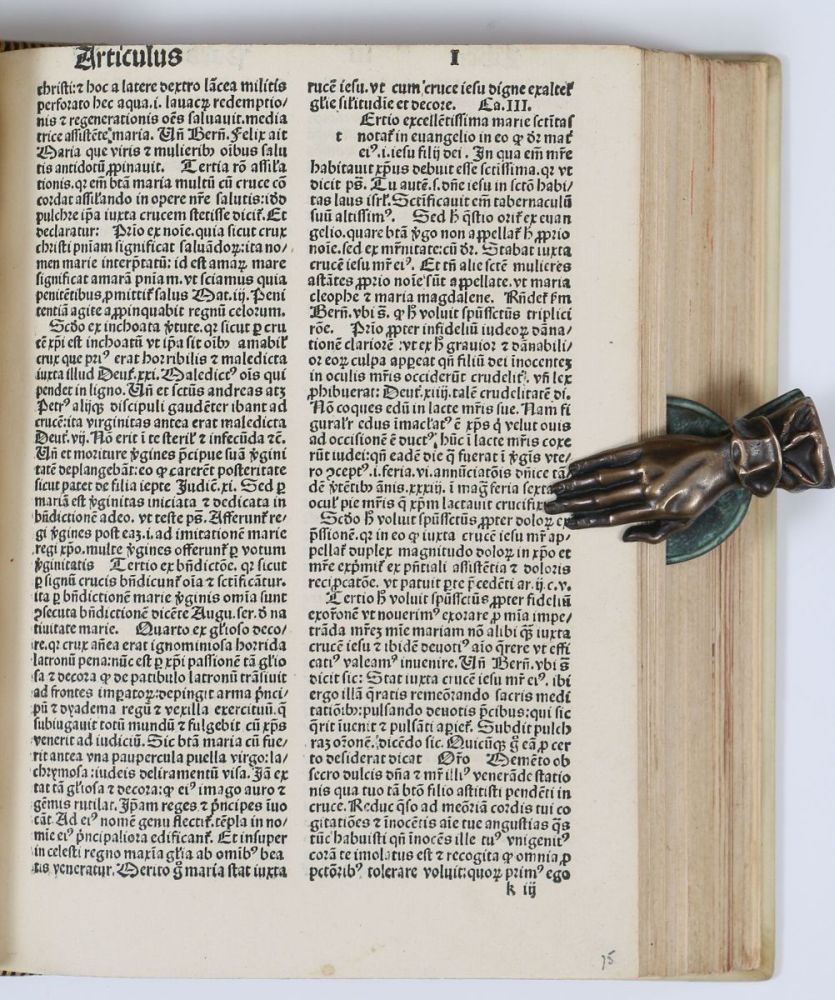 Articulus I
christi:⁊ hoc a latere dextro lācea militis
perforato hec aqua.i. lauacꝝ redemptio⸗
nis ⁊ regenerationis oēs saluauit.media
trice assistēte maria. Uñ Berñ. Felix ait
Maria que viris ⁊ mulierib⁹ oībus salu
tis antidotū ꝓpinauit. Tertia rō assil'a
tionis.qꝛ em̄ btā maria multū cū cruce cō
cordat assil'ando in opere nr̄e salutis:iō
pulchre ip̄a iuxta crucem stetisse dicit᷑. Et
declaratur: Prīo ex noīe.quia sicut crux
christi pniam significat saluādoꝝ:ita no⸗
men marie interp̄tatū: id est amaꝝ mare
significat amarā pniam.vt sciamus quia
penitētibus ꝓmittit᷑ salus Mat.iij. Peni
tentiā agite appinquabit regnū celorum.
Scd̄o ex inchoata v̓tute.qꝛ sicut ꝑ cru
cē xp̄i est inchoatū vt ip̄a sit oīb⁹ amabil'
crux que pri⁹ erat horribilis ⁊ maledicta
iuxta illud Deut᷑.xxi. Maledict⁹ oīs qui
pendet in ligno. Uñ et sctūs andreas atꝫ
Petr⁹ alijq̄ discipuli gaudēter ibant ad
crucē:ita virginitas antea erat maledicta
Deut᷑.vij. Nō erit ī te steril' ⁊ infecūda ⁊c̄.
Uñ et moriture v̓gines p̄cipue suā v̓gini
tatē deplangebāt:eo ꝙ carerēt posteritate
sicut patet de filia iepte Judic̄.xi. Sed ꝑ
mariā est v̓ginitas iniciata ⁊ dedicata in
bn̄dictionē adeo. vt teste ps̄. Afferunt᷑ re⸗
gi v̓gines post eaꝫ.i.ad imitationē marie
regi xp̄o.multe v̓gines offerunt᷑ ꝑ votum
v̓ginitatis Tertio ex bn̄dictōe. qꝛ sicut
ꝑ signū crucis bn̄dicunt᷑ oīa ⁊ sctificāt᷑ur.
ita ꝑ bn̄dictionē marie v̓ginis omīa sunt
ꝯsecuta bn̄dictionē dicēte Augu.ser.ð na
tiuitate marie. Quarto ex gl'ioso deco⸗
re.qꝛ crux añea erat ignominiosa horrida
latronū pena:nūc est ꝑ xp̄i passionē tā gl'io
sa ⁊ decora ꝙ de patibulo latronū trāsiuit
ad frontes imꝑatoꝝ:depingit arma p̄nci⸗
pū ⁊ dyadema regū ⁊ vexilla exercituū.q̄
subiugauit totū mundū ⁊ fulgebit cū xp̄s
venerit ad iudiciū. Sic btā maria cū fue⸗
rit antea vna paupercula puella virgo:la⸗
chrymosa:iudeis deliramentū visa. Jā ex
tat tā gl'iosa ⁊ decora:ꝙ ei⁹ imago auro ⁊
gēmis rutilat. Jp̄am reges ⁊ p̄ncipes īuo
cāt. Ad ei⁹ nomē genu flectit᷑.tēpla in no⸗
mīe ei⁹ p̄ncipaliora edificant᷑. Et insuper
in celesti regno maxīa gl'ia ab omīb⁹ bea
tis veneratur. Merito g̊ maria stat iuxta
rucē iesu. vt cum cruce iesu digne exaltet᷑
gl'ie sil'itudīe et decore. Ca.III.
Ertio excellētissima marie sctītas
t notat᷑ in euangelio in eo ꝙ dr̄ mat᷑
ei⁹.i.iesu filij dei. In qua em̄ mr̄e
habitauit xp̄us debuit esse sctissima.qꝛ vt
dicit ps̄. Tu autē.s.dn̄e iesu in sctō habi⸗
tas laus isrl'. Sctificauit em̄ tabernaculū
suū altissim⁹. Sed h̊ q̄stio orit᷑ ex euan
gelio.quare btā v̓go non appellat᷑ h̊ ꝓprio
noīe.sed ex mr̄nitate:cū dr̄. Stabat iuxta
crucē iesu mr̄ ei⁹. Et tñ alie sctē mulieres
astātes ꝓprio noīe sūt appellate.vt maria
cleophe ⁊ maria magdalene. Rn̄det᷑ ẜm
Berñ.vbi s̄. ꝙ h̊ voluit sp̄ussctūs triplici
rōe. Prīo ꝓpter infideliū iudeoꝝ dāna⸗
tionē clariorē:vt ex h̊ grauior ⁊ dānabili⸗
or eoꝝ culpa appeat qn̄ filiū dei inocenteꝫ
in oculis mr̄is occiderūt crudelit᷑. vñ lex
ꝓhibuerat: Deut᷑.xiiij.talē crudelitatē di.
Nō coques edū in lacte mr̄is sue. Nam fi
gural'r edus īmaclat⁹ ē xp̄s q̇ velut ouis
ad occisionē ē duct⁹. hūc ī lacte mr̄is coxe
rūt iudei:qn̄ eadē die q̄ fuerat ī v̓gīs vte⸗
ro ꝯcept⁹.i.feria.vi.annūciatōis dn̄ice tā
dē v̓tētib⁹ ānis.xxxiij. ī mag̃ feria sexta
ocul' pie mr̄is q̄ xp̄m lactauit crucifix
Scd̄o h̊ voluit sp̄ussctūs ꝓpter doloꝝ ex
p̄ssionē.qꝛ in eo ꝙ iuxta crucē iesu mr̄ ap⸗
pellat᷑ duplex magnitudo doloꝝ in xp̄o et
mr̄e exp̄mit᷑ ex p̄ntiali assistētia ⁊ doloris
reciꝓcatōe. vt patuit ꝑte p̄cedēti ar.ij.c.v.
Tertio h̊ voluit sp̄ussctūs ꝓpter fideliū
exorōnē vt nouerim⁹ exorare ꝓ mīa impe⸗
trāda mr̄eꝫ mīe mariam nō alibi q̄ꝫ iuxta
crucē iesu ⁊ ibidē deuoti⁹ aīo q̄rere vt effi
cati⁹ valeam⁹ inuenire. Uñ Berñ.vbi s̄
dicit sic: Stat iuxta crucē iesu mr̄ ei⁹. ibi
ergo illā q̄ratis remeōrando sacris medi
tatiōib⁹:pulsando deuotis p̄cibus:qui sic
q̄rit īuenit ⁊ pulsāti aꝑiet᷑. Subdit pulch
raꝫ orōnē.dicēdo sic. Quicūq̄ g̊ eā ꝓ cer
to desiderat dicat Orō Memēto ob
secro dulcis dn̄a ⁊ mr̄ illi⁹ venerāde statio
nis qua tuo tā btō filio astitisti pendēti in
cruce. Reduc q̄so ad meōriā cordis tui co
gitatiōes ⁊ īnocētis aīe tue angustias q̄s
tūc habuisti qn̄ īnocēs ille tu⁹ vnigenit⁹
corā te imolatus est ⁊ recogita ꝙ omnia ꝓ
pctōrib⁹ tolerare voluit:quoꝝ prim⁹ ego
k iij
75